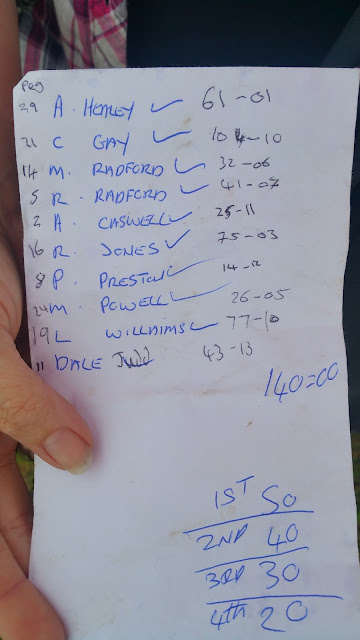 Peg
29 A. HENLEY ✓ 61-01
21 C GAY ✓ 104-10
14 M. RADFORD ✓ 32-06
5 R. RADFORD ✓ 41-07
2 A. CASWELL ✓ 25-11
16 R. JONES ✓ 75-03
8 P. PRESTON ✓ 14-
24 M. POWELL ✓ 26-05
19 L WILLAIMS ✓ 77-10
11 DALE Judd 43-13
140=00
1ST 50
2ND 40
3RD 30
4th 20